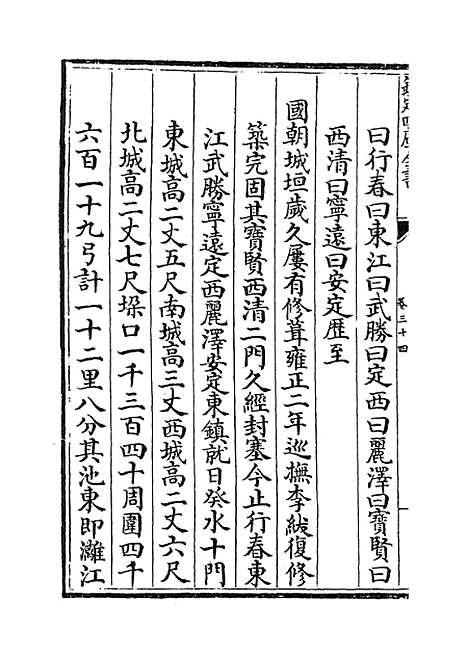 欽定四庫全書
卷三十四
曰行春曰東江曰武勝曰定西曰麗澤曰寶賢曰
西清曰寧遠曰安定歴至
國朝城垣歲久屢有修葺雍正二年巡撫李紱復修
築完固其寶賢西清二門久經封塞今止行春東
江武勝寧遠定西麗澤安定東鎮就日癸水十門
東城高二丈五尺南城高三丈西城高二丈六尺
北城高二丈七尺垜口一千三百四十周圍四千
六百一十九弓計一十二里八分其池東即灕江